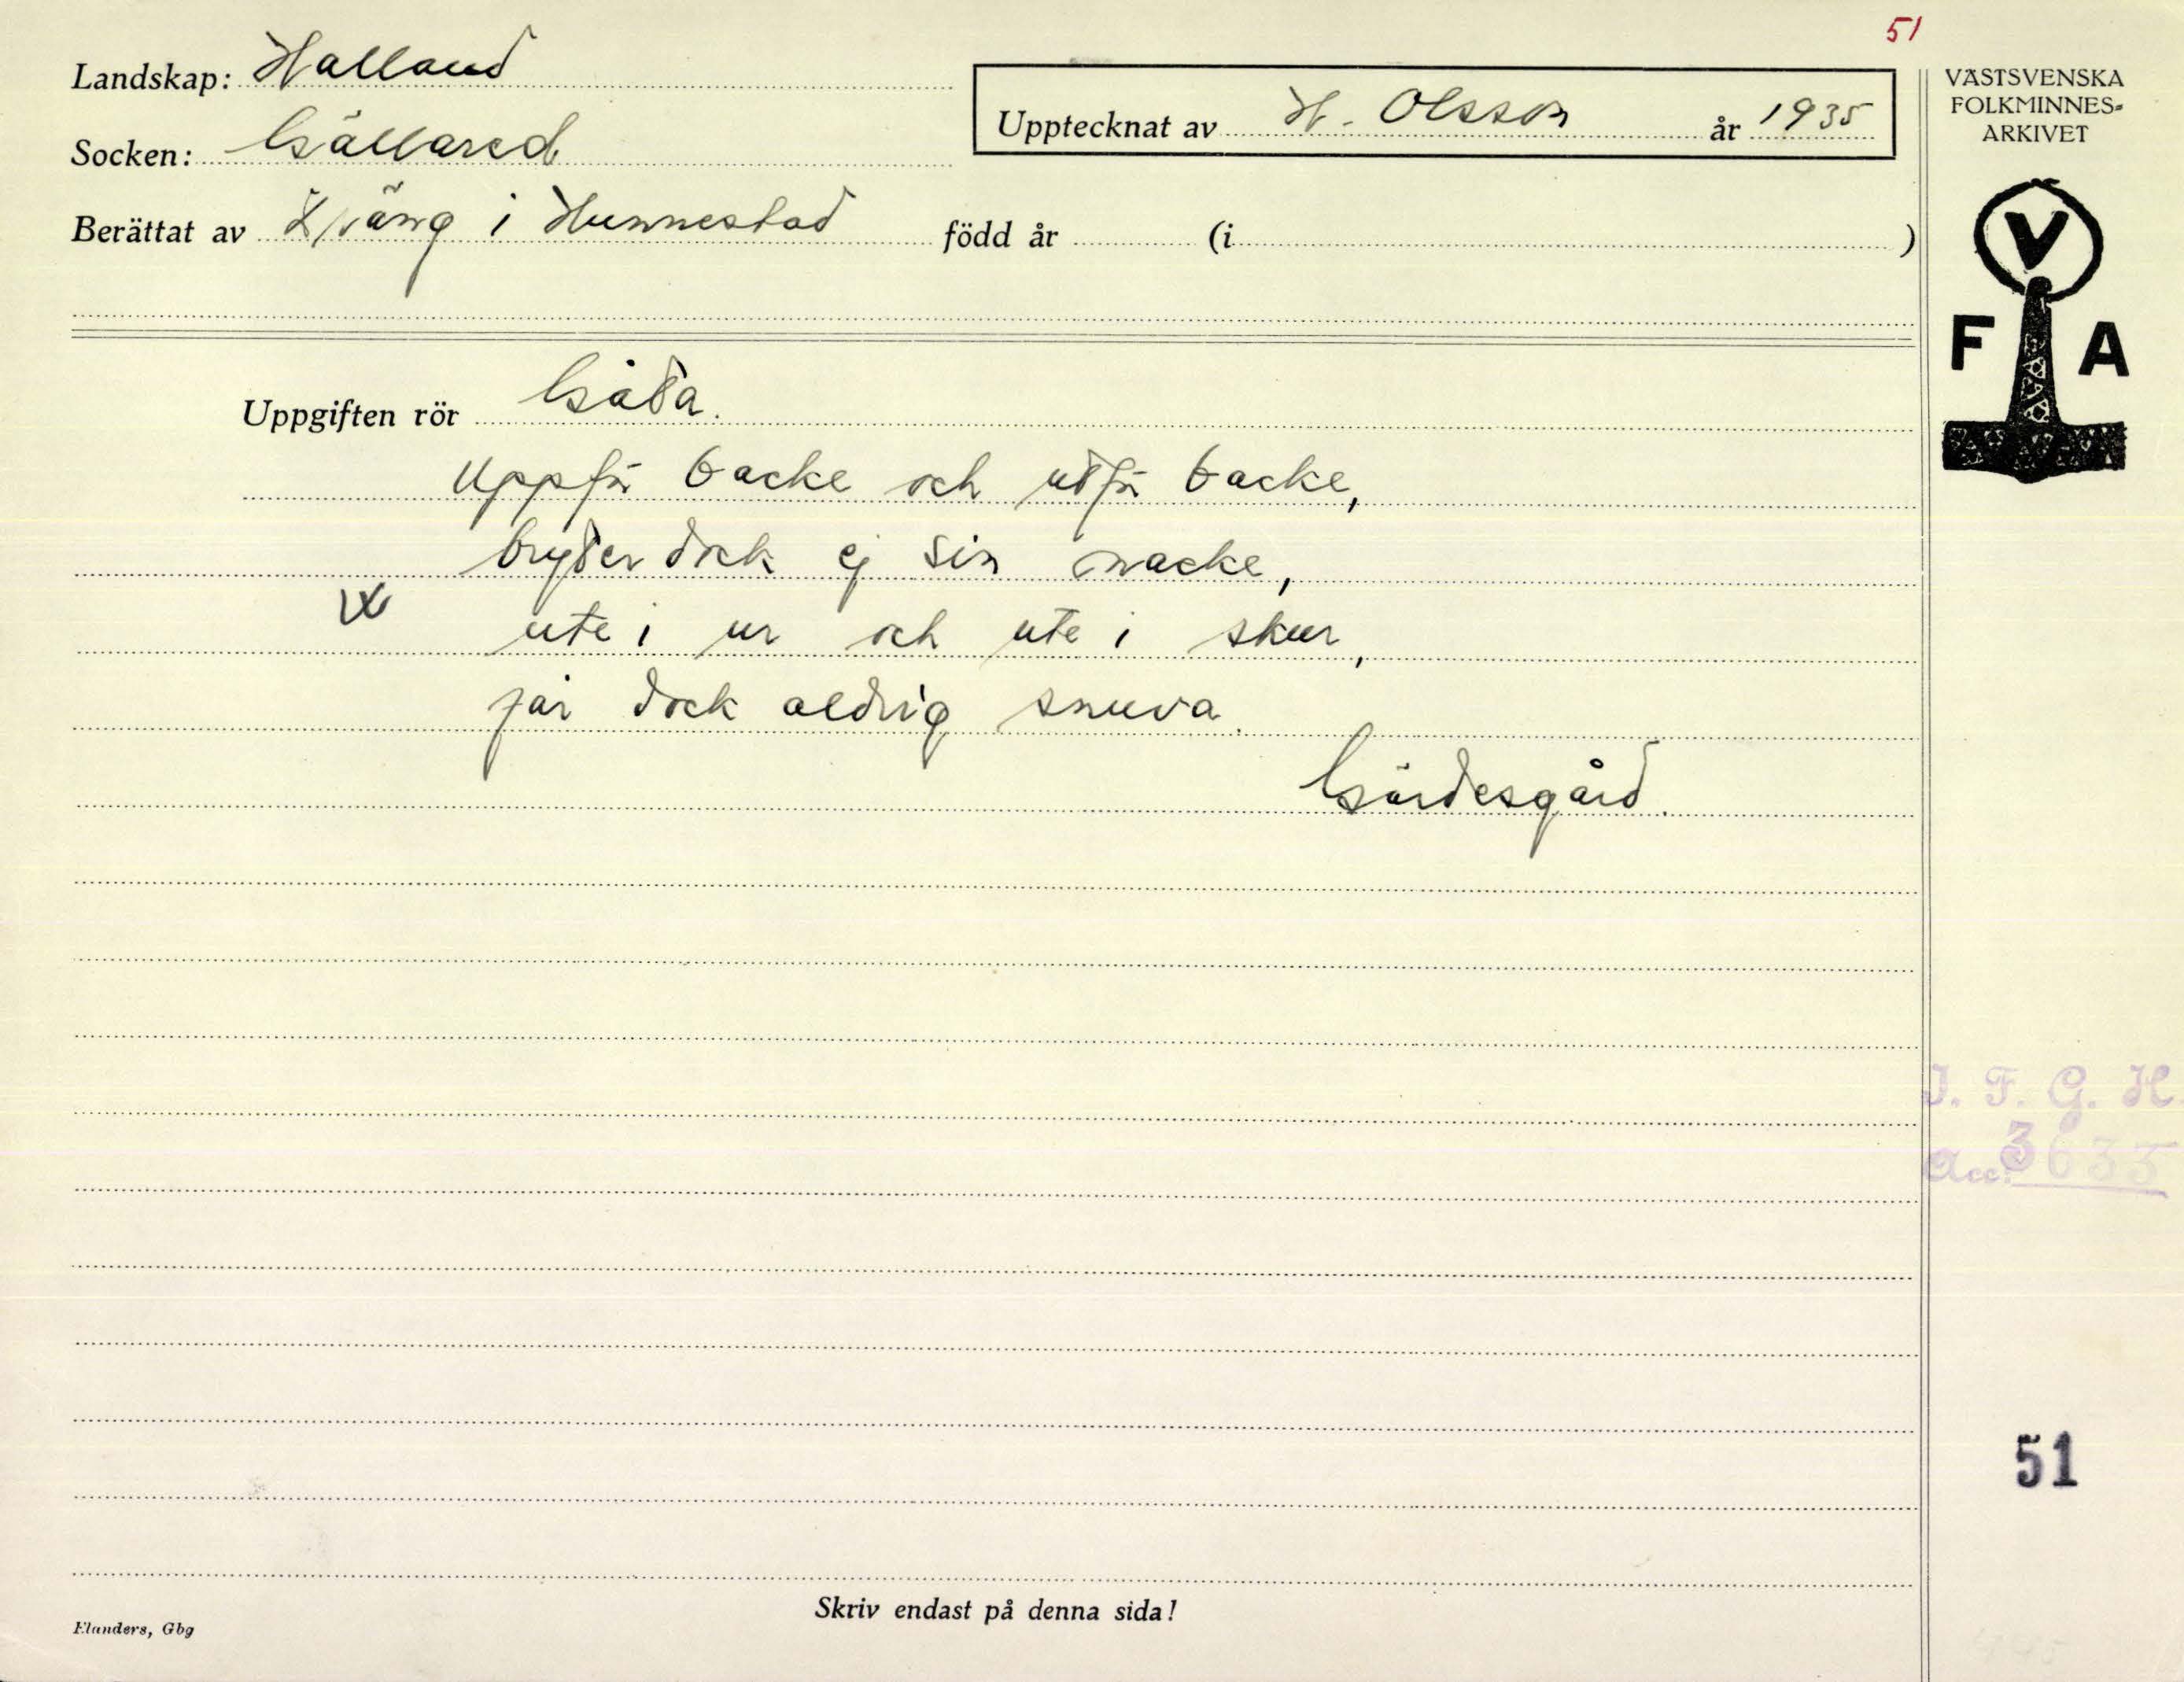 51
Landskap: Halland
Socken: Gällared
Upptecknat av H. Olsson år 1935
Berättat av i Hunnestad född år (i )
VÄSTSVENSKA
FOLKMINNES-
ARKIVET
V
F A
Uppgiften rör Gåta.
Uppför backe och utför backe,
bryter dock ej sin nacke,
ute i ur och ute i skur,
får dock aldrig snuva.
Gärdesgård.
I. F. G. H.
Acc. 3633
51
Skriv endast på denna sida!
Elanders, Gbg